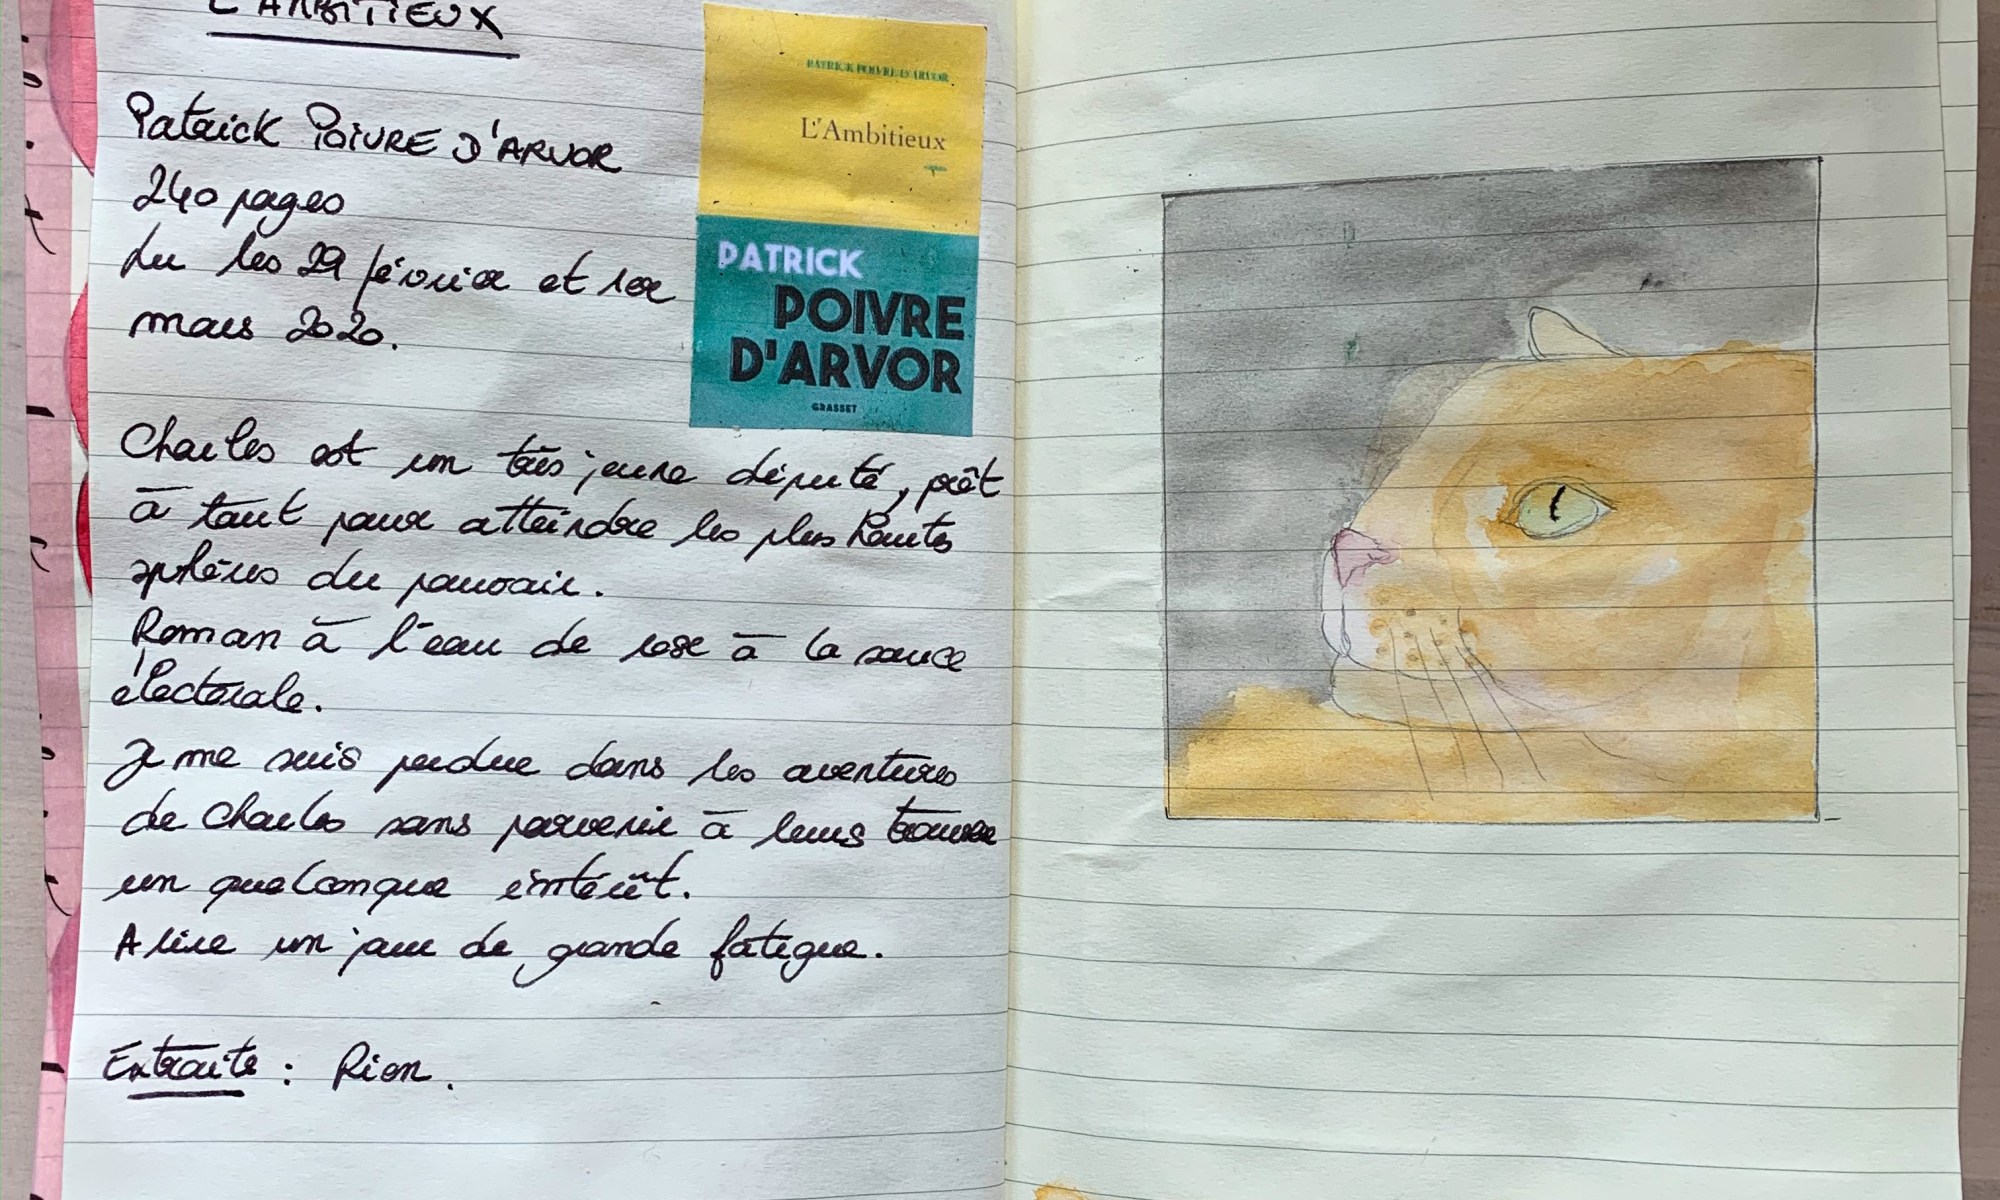 L'AMBITIEUX
Patrick POIVRE D'ARVOR
240 pages
du les 29 février et 1er
mars 2020.
PATRICK POIVRE D'ARVOR
L'Ambitieux
PATRICK
POIVRE
D'ARVOR
GRASSET
Charles est un très jeune député, prêt
à tout pour atteindre les plus hautes
sphères du pouvoir.
Roman à l'eau de rose à la sauce
électorale.
Je me suis perdue dans les aventures
de Charles sans parvenir à leurs trouver
un quelconque intérêt.
A lire un jour de grande fatigue.
Extraits : Rien.